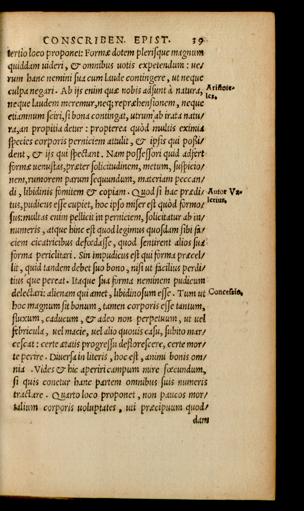 CONSCRIBEN. EPIST. 39
tertio loco proponet: Formæ dotem plerisque magnum
quiddam uideri, & omnibus uotis expetendum: ue/
rum hanc nemini sua cum laude contingere, ut neque
culpa negari. Ab ijs enim quæ nobis adsunt à natura,
Aristote-
les,
neque laudem meremur, neq; reprehensionem, neque
etiamnum sciri, si bona contingat, utrum ab irata natu/
ra, an propitia detur: propterea quòd multis eximia
species corporis perniciem attulit, & ipsis qui possi/
dent, & ijs qui spectant. Nam possessori quid adfert
formæ uenustas, præter solicitudinem, metum, suspicio/
nem, rumorem parum secundum, materiam peccan/
di, libidinis fomitem & copiam. Quod si hac prædi/
Autor Va-
lerius,
tus, pudicus esse cupiet, hoc ipso miser est quòd formo/
sus: multas enim pellicit in perniciem, solicitatur ab in/
numeris, atque hinc est quod legimus quosdam sibi fa/
ciem cicatricibus defœdasse, quod sentirent alios sua
forma periclitari. Sin impudicus est qui forma præcel/
lit, quid tandem debet suo bono, nisi ut facilius perdi/
tius que pereat. Itaque sua forma neminem pudicum
delectari: alienam qui amet, libidinosum esse. Tum ut
Concessio,
hoc magnum sit bonum, tamen corporis esse tantum,
fluxum, caducum, & adeo non perpetuum, ut uel
febricula, uel macie, uel alio quouis casu, subito mar/
cescat: certe ætatis progressu deflorescere, certe mor/
te perire. Diuersa in literis, hoc est, animi bonis om/
nia. Vides & hic aperiri campum mire fœcundum,
si quis conetur hanc partem omnibus suis numeris
tractare. Quarto loco proponet, non paucos mor/
talium corporis uoluptates, ui præcipuum quod/
dam